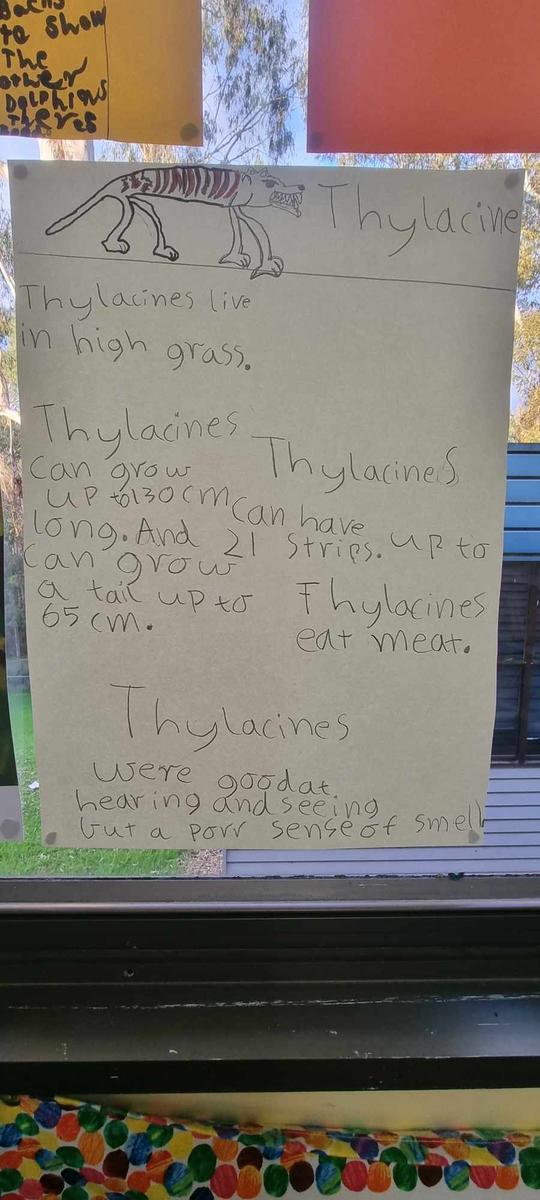 Backs
to show
The
other
Dolphins
Theres
Thylacine
Thylacines live
in high grass.
Thylacines
can grow
up to 130 cm
long. And
can grow
a tail up to
65 cm.
Thylacines
can have
21 strips. up to
Thylacines
eat meat.
Thylacines
were good at
hearing and seeing
but a porr sense of smell